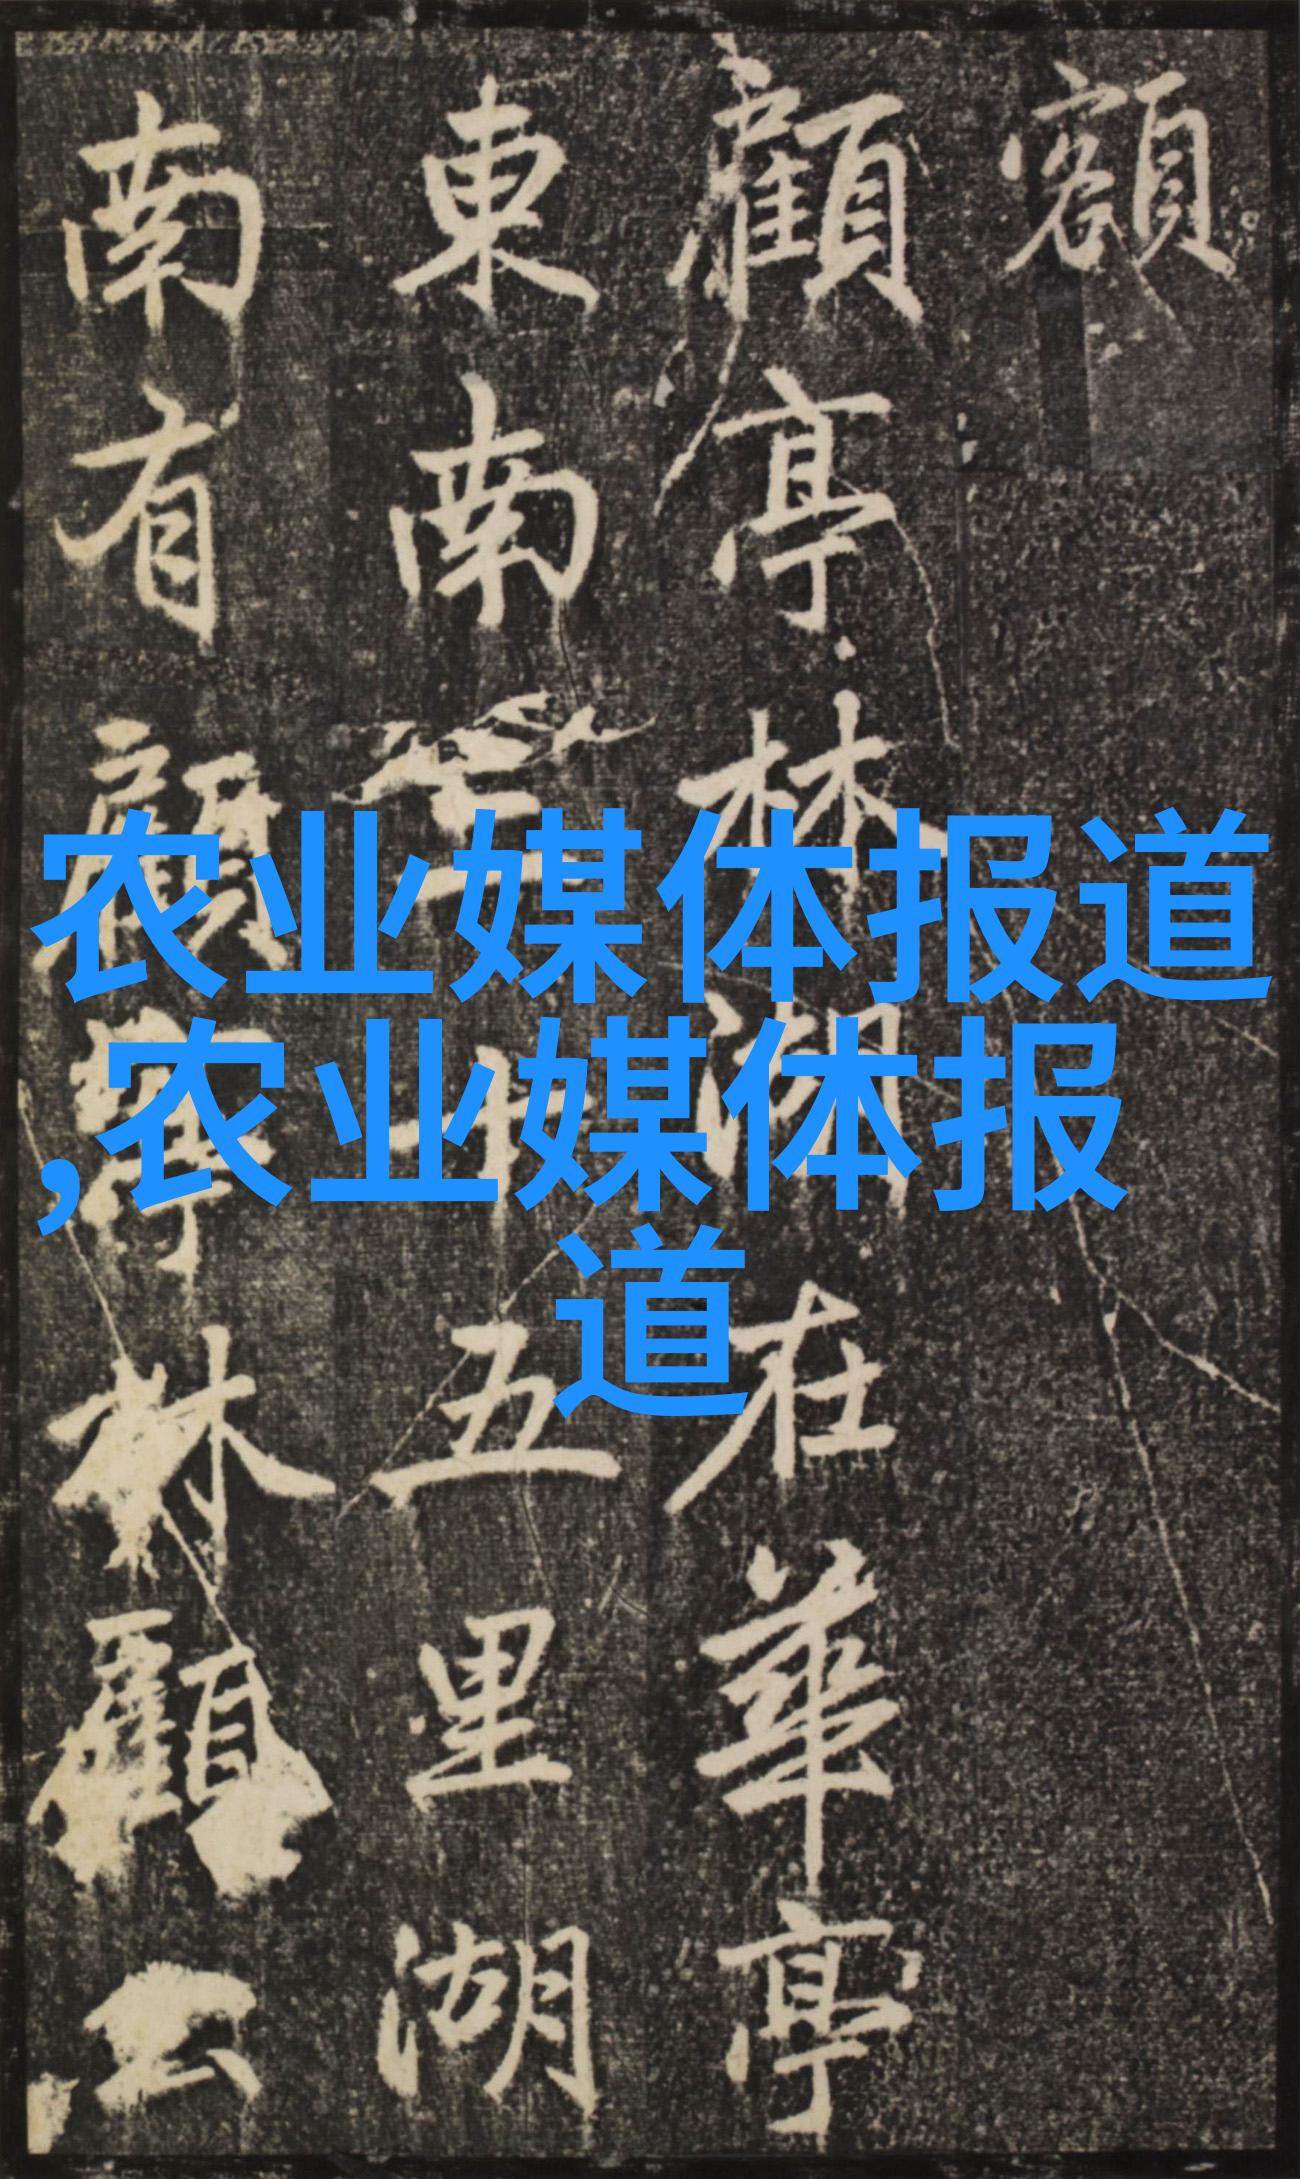 額
顧亭林湖在華亭
東南三十五里湖
南有顧亭林顧公
农业媒体报道
,农业媒体报
道